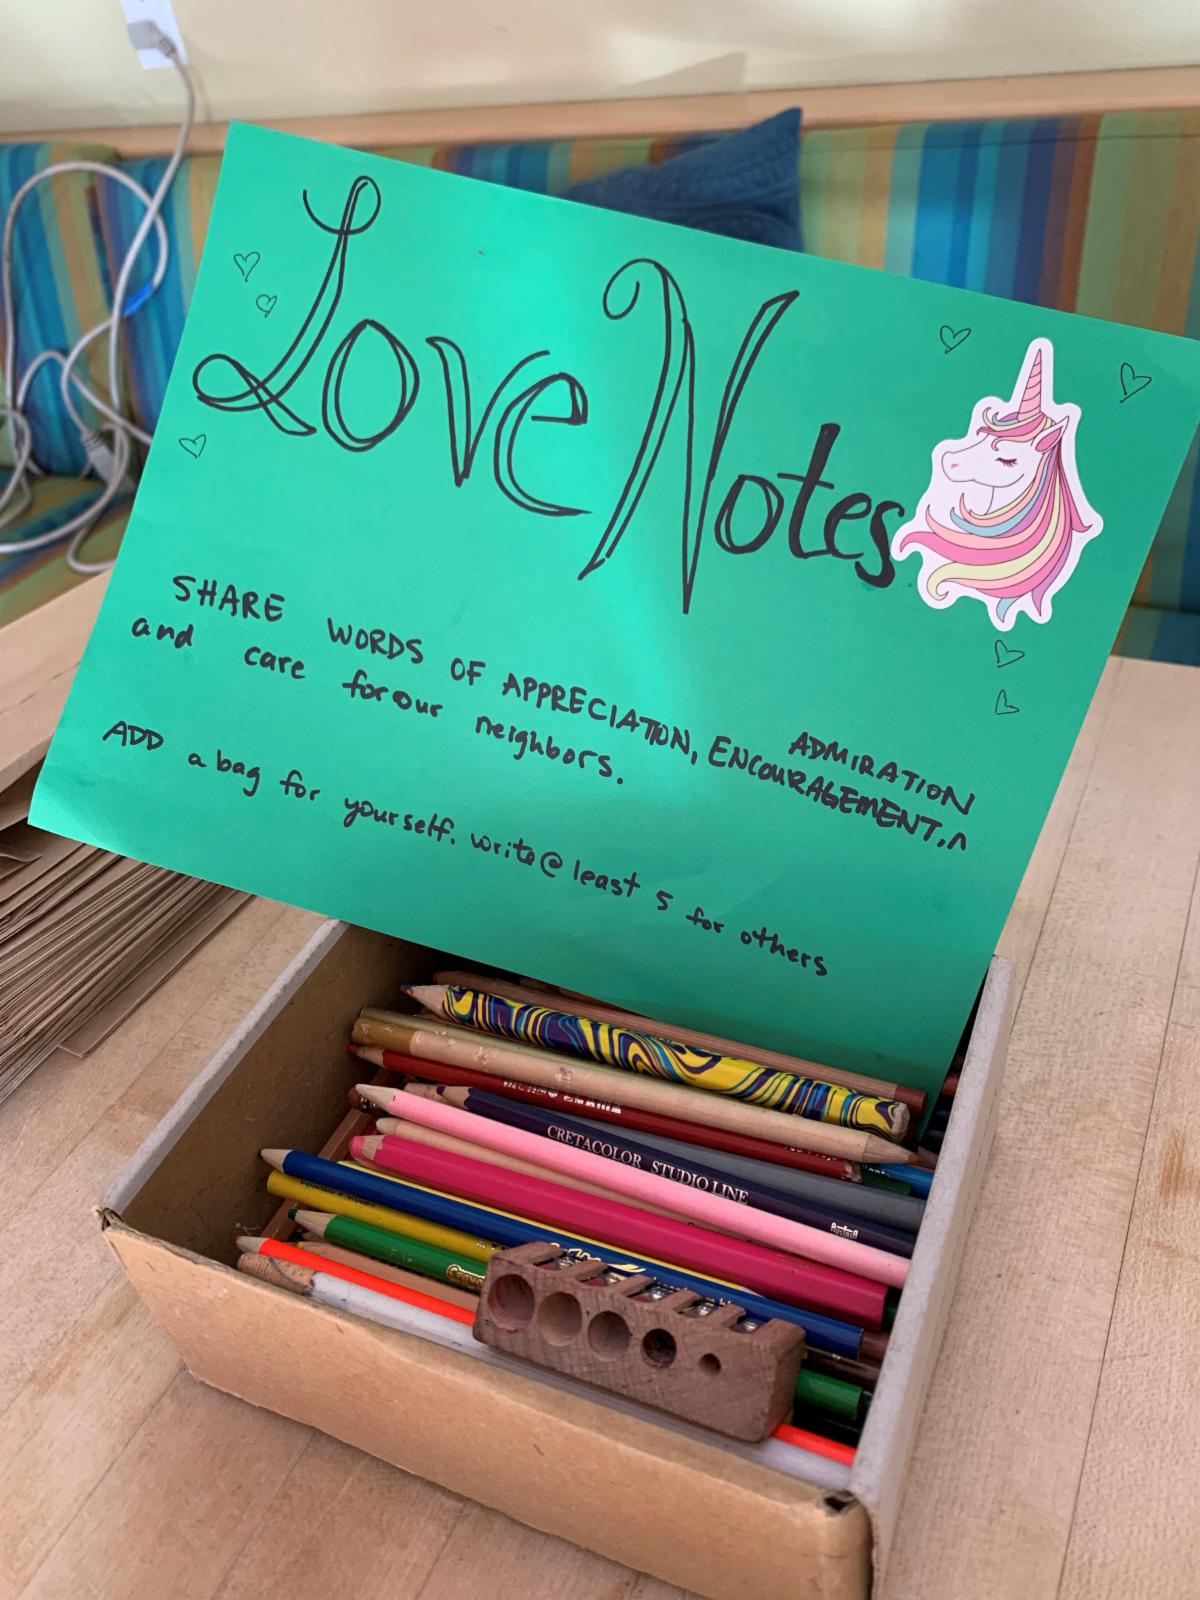 Love Notes
SHARE WORDS OF APPRECIATION, ENCOURAGEMENT, ^
ADMIRATION
and care for our neighbors.
ADD a bag for yourself. write @ least 5 for others
CRETACOLOR STUDIO LINE